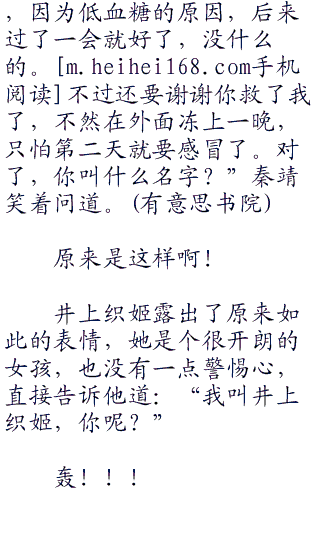 ，因为低血糖的原因，后来
过了一会就好了，没什么
的。[m.heihei168.com手机
阅读]不过还要谢谢你救了我
了，不然在外面冻上一晚，
只怕第二天就要感冒了。对
了，你叫什么名字？”秦靖
笑着问道。(有意思书院)
原来是这样啊！
井上织姬露出了原来如
此的表情，她是个很开朗的
女孩，也没有一点警惕心，
直接告诉他道：“我叫井上
织姬，你呢？”
轰！！！